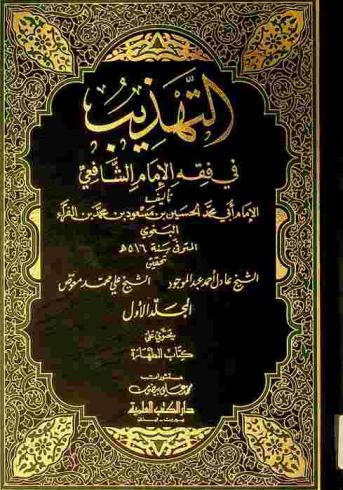 التهذيب
في فقه الإمام الشافعي
تأليف
الإمام أبي محمد الحسين بن مسعود بن محمد بن الفراء
البغوي
المتوفى سنة ٥١٦ هـ
تحقيق
الشيخ عادل أحمد عبد الموجود الشيخ علي محمد معوض
المجلد الأول
يحتوي على
كتاب الطهارة
منشورات
محمد علي بيضون
دار الكتب العلمية
بيروت - لبنان